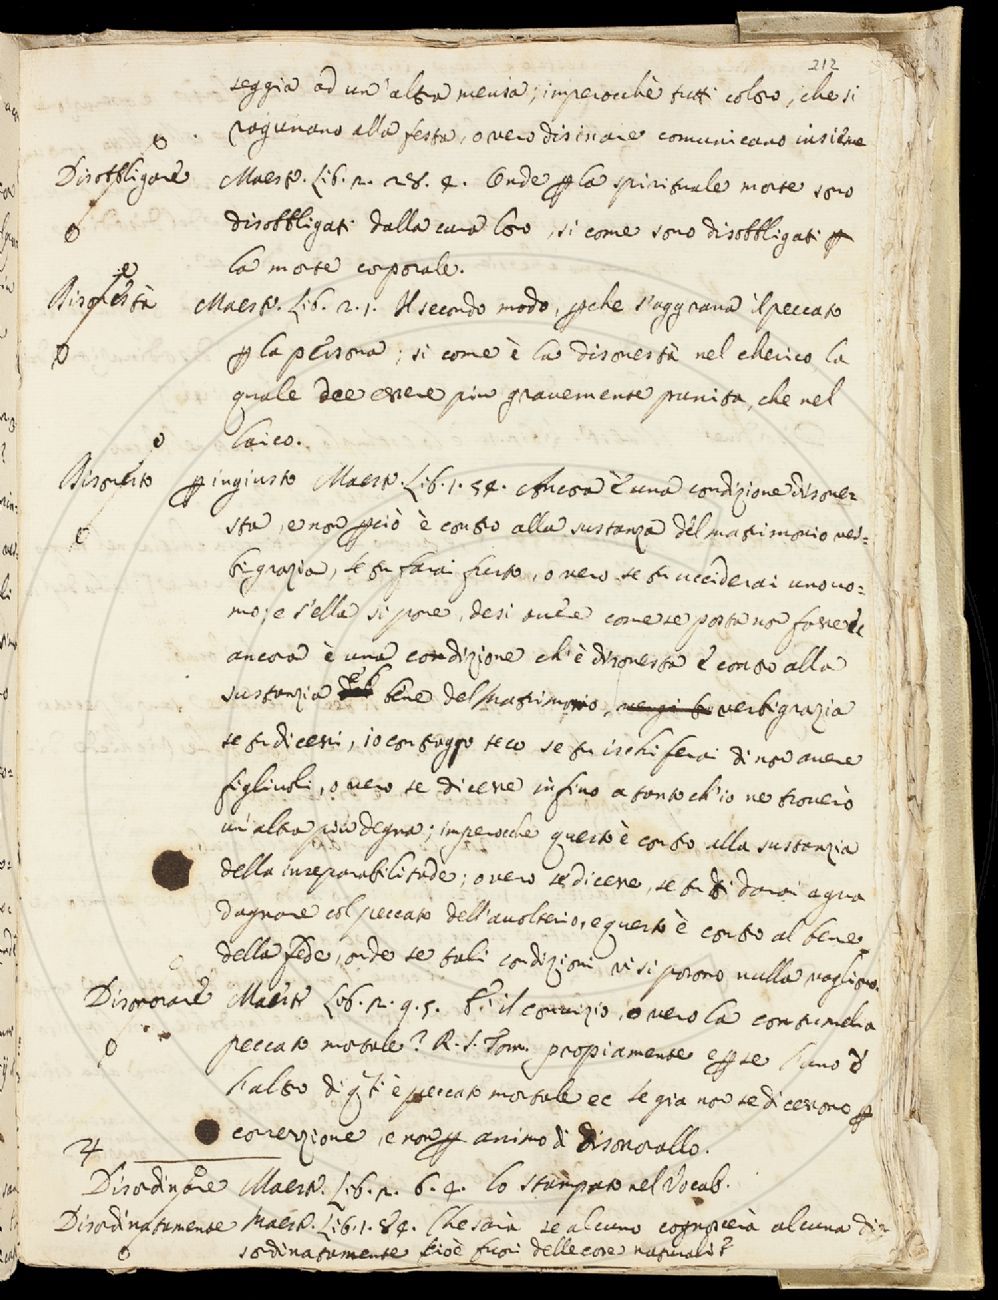 212
seggia ad un'altra mensa; imperocchè tutti coloro, che si
ragunano alla festa, o vero disinare comunicano insieme
Disobbligare Maestr. Lib. 2. 28. 4. Onde p la spirituale morte sono
disobbligati dalla cura loro, si come sono disobbligati p
la morte corporale.
Disonestà Maestr. Lib. 2. 1. Il secondo modo, pche s'aggrava il peccato
p la persona; si come è la disonestà nel cherico, la
quale dee essere più gravemente punita, che nel
laico.
Disonesto p ingiusto Maestr. Lib. 1. 54. Ancora è una condizione disone-
sta, e non pciò è contro alla sustanza del matrimonio ver=
bigrazia, se tu farai furto, o vero se tu ucciderai uno uo=
mo; e s'ella si pone, desi avere come se posta non fosse e
ancora è una condizione ch'è disonesta è contro alla
sustanzia bene del Matrimonio, verbigrazia
se tu dicessi, io contraggo teco se tu ischiferai di non avere
figliuoli, o vero se dicesse infino a tanto ch'io ne troverò
un'altra più degna; imperochè questo è contro alla sustanzia
della inseparabilitade; o vero se dicesse, se tu ti darai a gua
dagnare col peccato dell'avolterio, e questo è contro al bene
della Fede, onde se tali condizioni vi si pongono nulla vagliono.
Disonorare Maestr. Lib. 2. 9. 5. Se il convizio, o vero la contumelia
peccato mortale? R. S. Tom. propiamente e p se l'uno e
l'altro di qti è peccato mortale ec se gia non se dicessono p
correzione, e non p animo di disonorallo.
4
Disordinare Maestr. Lib. 2. 6. 4. lo stampato nel Vocab.
Disordinatamente Maestr. Lib. 1. 84. Che sarà se alcuno cognoscerà alcuna di=
sordinatamente cioè fuori delle cose naturali?